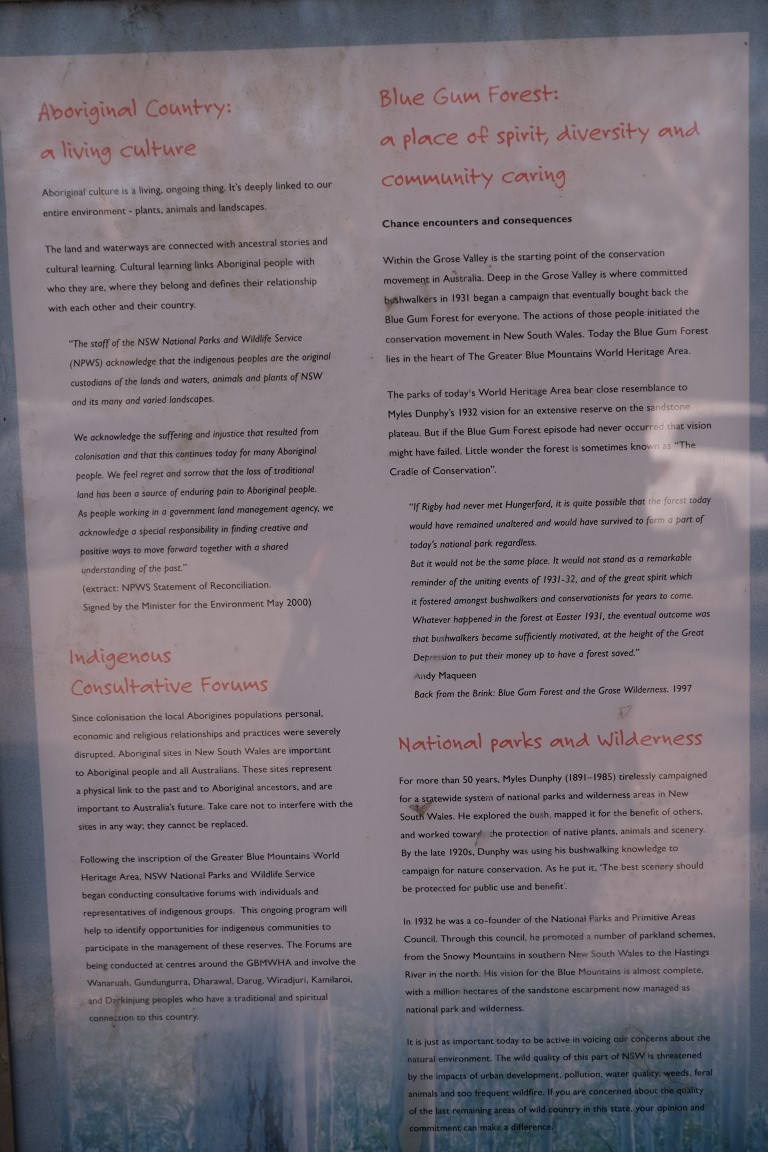 Aboriginal Country:
a living culture
Aboriginal culture is a living, ongoing thing. It's deeply linked to our
entire environment - plants, animals and landscapes.
The land and waterways are connected with ancestral stories and
cultural learning. Cultural learning links Aboriginal people with
who they are, where they belong and defines their relationship
with each other and their country.
"The staff of the NSW National Parks and Wildlife Service
(NPWS) acknowledge that the indigenous peoples are the original
custodians of the lands and waters, animals and plants of NSW
and its many and varied landscapes.
We acknowledge the suffering and injustice that resulted from
colonisation and that this continues today for many Aboriginal
people. We feel regret and sorrow that the loss of traditional
land has been a source of enduring pain to Aboriginal people.
As people working in a government land management agency, we
acknowledge a special responsibility in finding creative and
positive ways to move forward together with a shared
understanding of the past."
(extract: NPWS Statement of Reconciliation.
Signed by the Minister for the Environment May 2000)
Indigenous
Consultative Forums
Since colonisation the local Aborigines populations personal,
economic and religious relationships and practices were severely
disrupted. Aboriginal sites in New South Wales are important
to Aboriginal people and all Australians. These sites represent
a physical link to the past and to Aboriginal ancestors, and are
important to Australia's future. Take care not to interfere with the
sites in any way; they cannot be replaced.
Following the inscription of the Greater Blue Mountains World
Heritage Area, NSW National Parks and Wildlife Service
began conducting consultative forums with individuals and
representatives of indigenous groups. This ongoing program will
help to identify opportunities for indigenous communities to
participate in the management of these reserves. The Forums are
being conducted at centres around the GBMWHA and involve the
Wanaruah, Gundungurra, Dharawal, Darug, Wiradjuri, Kamilaroi,
and Darkinjung peoples who have a traditional and spiritual
connection to this country.
Blue Gum Forest:
a place of spirit, diversity and
community caring
Chance encounters and consequences
Within the Grose Valley is the starting point of the conservation
movement in Australia. Deep in the Grose Valley is where committed
bushwalkers in 1931 began a campaign that eventually bought back the
Blue Gum Forest for everyone. The actions of those people initiated the
conservation movement in New South Wales. Today the Blue Gum Forest
lies in the heart of The Greater Blue Mountains World Heritage Area.
The parks of today's World Heritage Area bear close resemblance to
Myles Dunphy's 1932 vision for an extensive reserve on the sandstone
plateau. But if the Blue Gum Forest episode had never occurred that vision
might have failed. Little wonder the forest is sometimes known as "The
Cradle of Conservation".
"If Rigby had never met Hungerford, it is quite possible that the forest today
would have remained unaltered and would have survived to form a part of
today's national park regardless.
But it would not be the same place. It would not stand as a remarkable
reminder of the uniting events of 1931-32, and of the great spirit which
it fostered amongst bushwalkers and conservationists for years to come.
Whatever happened in the forest at Easter 1931, the eventual outcome was
that bushwalkers became sufficiently motivated, at the height of the Great
Depression to put their money up to have a forest saved."
Andy Maqueen
Back from the Brink: Blue Gum Forest and the Grose Wilderness. 1997
National parks and Wilderness
For more than 50 years, Myles Dunphy (1891–1985) tirelessly campaigned
for a statewide system of national parks and wilderness areas in New
South Wales. He explored the bush, mapped it for the benefit of others,
and worked toward the protection of native plants, animals and scenery.
By the late 1920s, Dunphy was using his bushwalking knowledge to
campaign for nature conservation. As he put it, 'The best scenery should
be protected for public use and benefit'.
In 1932 he was a co-founder of the National Parks and Primitive Areas
Council. Through this council, he promoted a number of parkland schemes,
from the Snowy Mountains in southern New South Wales to the Hastings
River in the north. His vision for the Blue Mountains is almost complete,
with a million hectares of the sandstone escarpment now managed as
national park and wilderness.
It is just as important today to be active in voicing our concerns about the
natural environment. The wild quality of this part of NSW is threatened
by the impacts of urban development, pollution, water quality, weeds, feral
animals and too frequent wildfire. If you are concerned about the quality
of the last remaining areas of wild country in this state, your opinion and
commitment can make a difference.